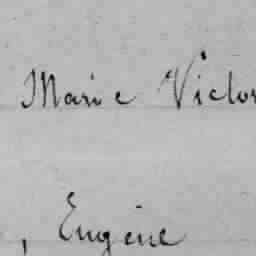 Marie Victor
, Eugène